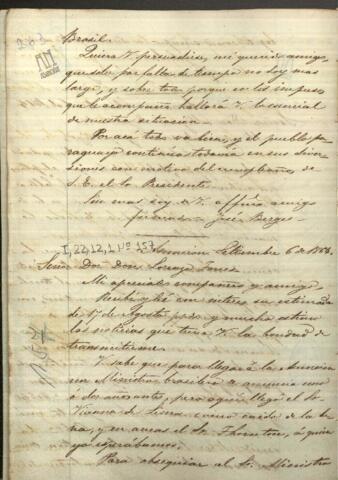 Brasil.
Quiera V. persuadirse, mi querido amigo,
que solo por falta de tiempo no soy mas
largo, y sobre todo porque en los impresos
que le acompaño hallará V. lo esencial
de nuestra situacion.
Por acá todo va bien, y el pueblo pa-
raguayo continúa todavia en sus diver-
siones con motivo del cumpleaños de
S. E. el Sr. Presidente.
Sin mas soy de V. affmo amigo
José Berges
I,22,12,1 Nº 157
Asuncion Setiembre 6 de 186
Señor Dor Don Lorenzo Torres
Mi apreciado compatriota y amigo
Recibí con interes su estimada
de 17 de Agosto ppdo y mucho estimo
las noticias que tuvo V. la bondad de
transmitirme.
V. sabe que, para llegar á la Asuncion
un Ministro brasilero se anuncia uno
ó dos años antes, pero aquí llegó el Sr
Vianna de Lima como caido de la lu-
na, y en aveas el Sr. Thornton, á quien
ya esperábamos.
Para obsequiar al Sr. Ministro